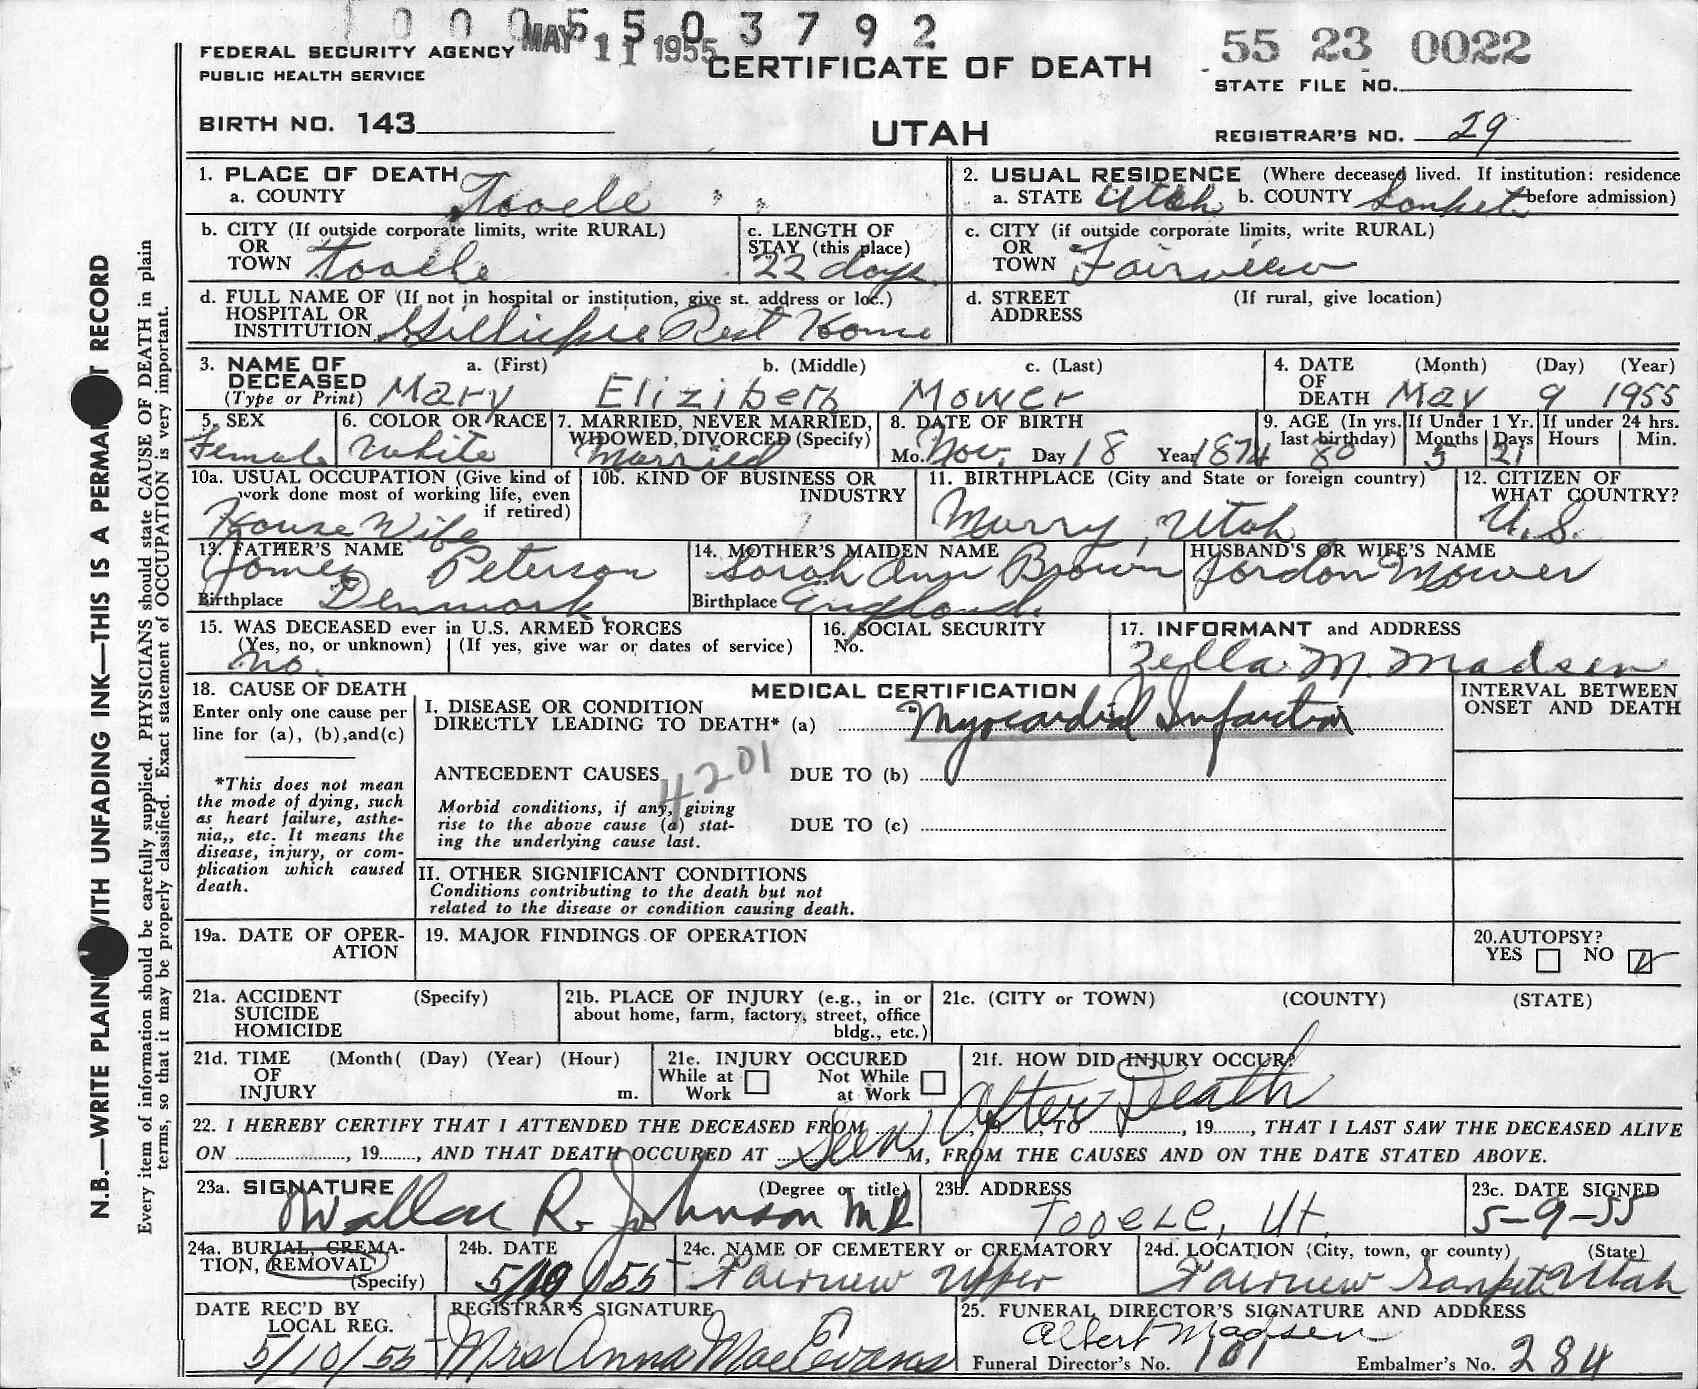 1 0 0 0 5 5 0 3 7 9 2
MAY 11 1955
FEDERAL SECURITY AGENCY
PUBLIC HEALTH SERVICE
CERTIFICATE OF DEATH
55 23 0022
STATE FILE NO.
BIRTH NO. 143
UTAH
REGISTRAR'S NO. 29
1. PLACE OF DEATH
a. COUNTY Tooele " "
2. USUAL RESIDENCE (Where deceased lived. If institution: residence
a. STATE Utah b. COUNTY Sanpete before admission)
b. CITY (If outside corporate limits, write RURAL)
OR
TOWN Tooele
c. LENGTH OF
STAY (this place)
22 days
c. CITY (if outside corporate limits, write RURAL)
OR
TOWN Fairview
d. FULL NAME OF (If not in hospital or institution, give st. address or loc.)
HOSPITAL OR
INSTITUTION Gillispie Rest Home
d. STREET (If rural, give location)
ADDRESS
3. NAME OF a. (First) b. (Middle) c. (Last)
DECEASED
(Type or Print) Mary Elizibeth Mower
4. DATE (Month) (Day) (Year)
OF
DEATH May 9 1955
5. SEX
Female
6. COLOR OR RACE
White
7. MARRIED, NEVER MARRIED,
WIDOWED, DIVORCED (Specify)
Married
8. DATE OF BIRTH
Mo. Nov. Day 18 Year 1874
9. AGE (In yrs. If Under 1 Yr. If under 24 hrs.
last birthday) Months Days Hours Min.
80 5 21
10a. USUAL OCCUPATION (Give kind of
work done most of working life, even
if retired)
House Wife
10b. KIND OF BUSINESS OR
INDUSTRY
11. BIRTHPLACE (City and State or foreign country)
Murry, Utah
12. CITIZEN OF
WHAT COUNTRY?
U.S.
13. FATHER'S NAME
James Peterson
Birthplace Denmark
14. MOTHER'S MAIDEN NAME
Sarah Ann Brown
Birthplace England
HUSBAND'S OR WIFE'S NAME
Jordon Mower
15. WAS DECEASED ever in U.S. ARMED FORCES
(Yes, no, or unknown) (If yes, give war or dates of service)
no.
16. SOCIAL SECURITY
No.
17. INFORMANT and ADDRESS
Zella M. Madsen
18. CAUSE OF DEATH
Enter only one cause per
line for (a), (b),and(c)
*This does not mean
the mode of dying, such
as heart failure, asthe-
nia,, etc. It means the
disease, injury, or com-
plication which caused
death.
MEDICAL CERTIFICATION
I. DISEASE OR CONDITION
DIRECTLY LEADING TO DEATH* (a) Myocardial Infarction
ANTECEDENT CAUSES DUE TO (b)
4201
Morbid conditions, if any, giving
rise to the above cause (a) stat-
ing the underlying cause last.
DUE TO (c)
INTERVAL BETWEEN
ONSET AND DEATH
II. OTHER SIGNIFICANT CONDITIONS
Conditions contributing to the death but not
related to the disease or condition causing death.
19a. DATE OF OPER-
ATION
19. MAJOR FINDINGS OF OPERATION
20. AUTOPSY?
YES NO
21a. ACCIDENT (Specify)
SUICIDE
HOMICIDE
21b. PLACE OF INJURY (e.g., in or
about home, farm, factory, street, office
bldg., etc.)
21c. (CITY or TOWN) (COUNTY) (STATE)
21d. TIME (Month( (Day) (Year) (Hour)
OF
INJURY m.
21e. INJURY OCCURED
While at Not While
Work at Work
21f. HOW DID INJURY OCCUR?
Seen After Death
22. I HEREBY CERTIFY THAT I ATTENDED THE DECEASED FROM , 19 , TO , 19 , THAT I LAST SAW THE DECEASED ALIVE
ON , 19 , AND THAT DEATH OCCURED AT M, FROM THE CAUSES AND ON THE DATE STATED ABOVE.
23a. SIGNATURE (Degree or title)
Wallace R. Johnson MD
23b. ADDRESS
Tooele, Ut.
23c. DATE SIGNED
5-9-55
24a. BURIAL, CREMA-
TION, REMOVAL
(Specify)
24b. DATE
5/10/55
24c. NAME OF CEMETERY or CREMATORY
Fairview Upper
24d. LOCATION (City, town, or county) (State)
Fairview Sanpete Utah
DATE REC'D BY
LOCAL REG.
5/10/55
REGISTRAR'S SIGNATURE
Mrs Anna Mae Evans
25. FUNERAL DIRECTOR'S SIGNATURE AND ADDRESS
Albert Madsen
Funeral Director's No. 101 Embalmer's No. 284
N.B.—WRITE PLAIN WITH UNFADING INK—THIS IS A PERMA T RECORD
Every item of information should be carefully supplied. PHYSICIANS should state CAUSE OF DEATH in plain
terms, so that it may be properly classified. Exact statement of OCCUPATION is very important.